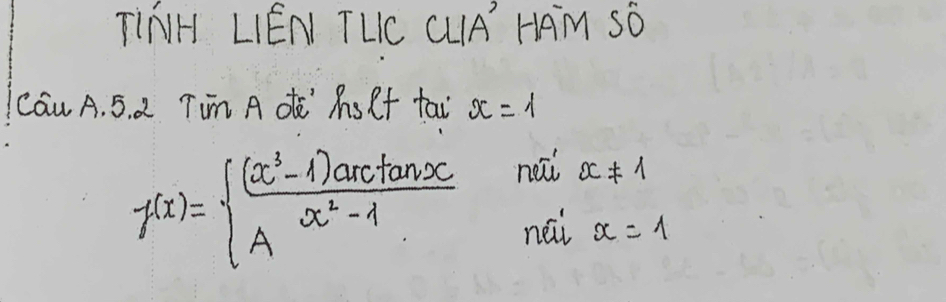 TÍNH LIÊN TỤC CỦA HÀM SỐ
Câu A.5.2 Tìm A để hslt tại x = 1
f(x) = { (x³ - 1)arctanx / x² - 1 nếu x ≠ 1
A nếu x = 1